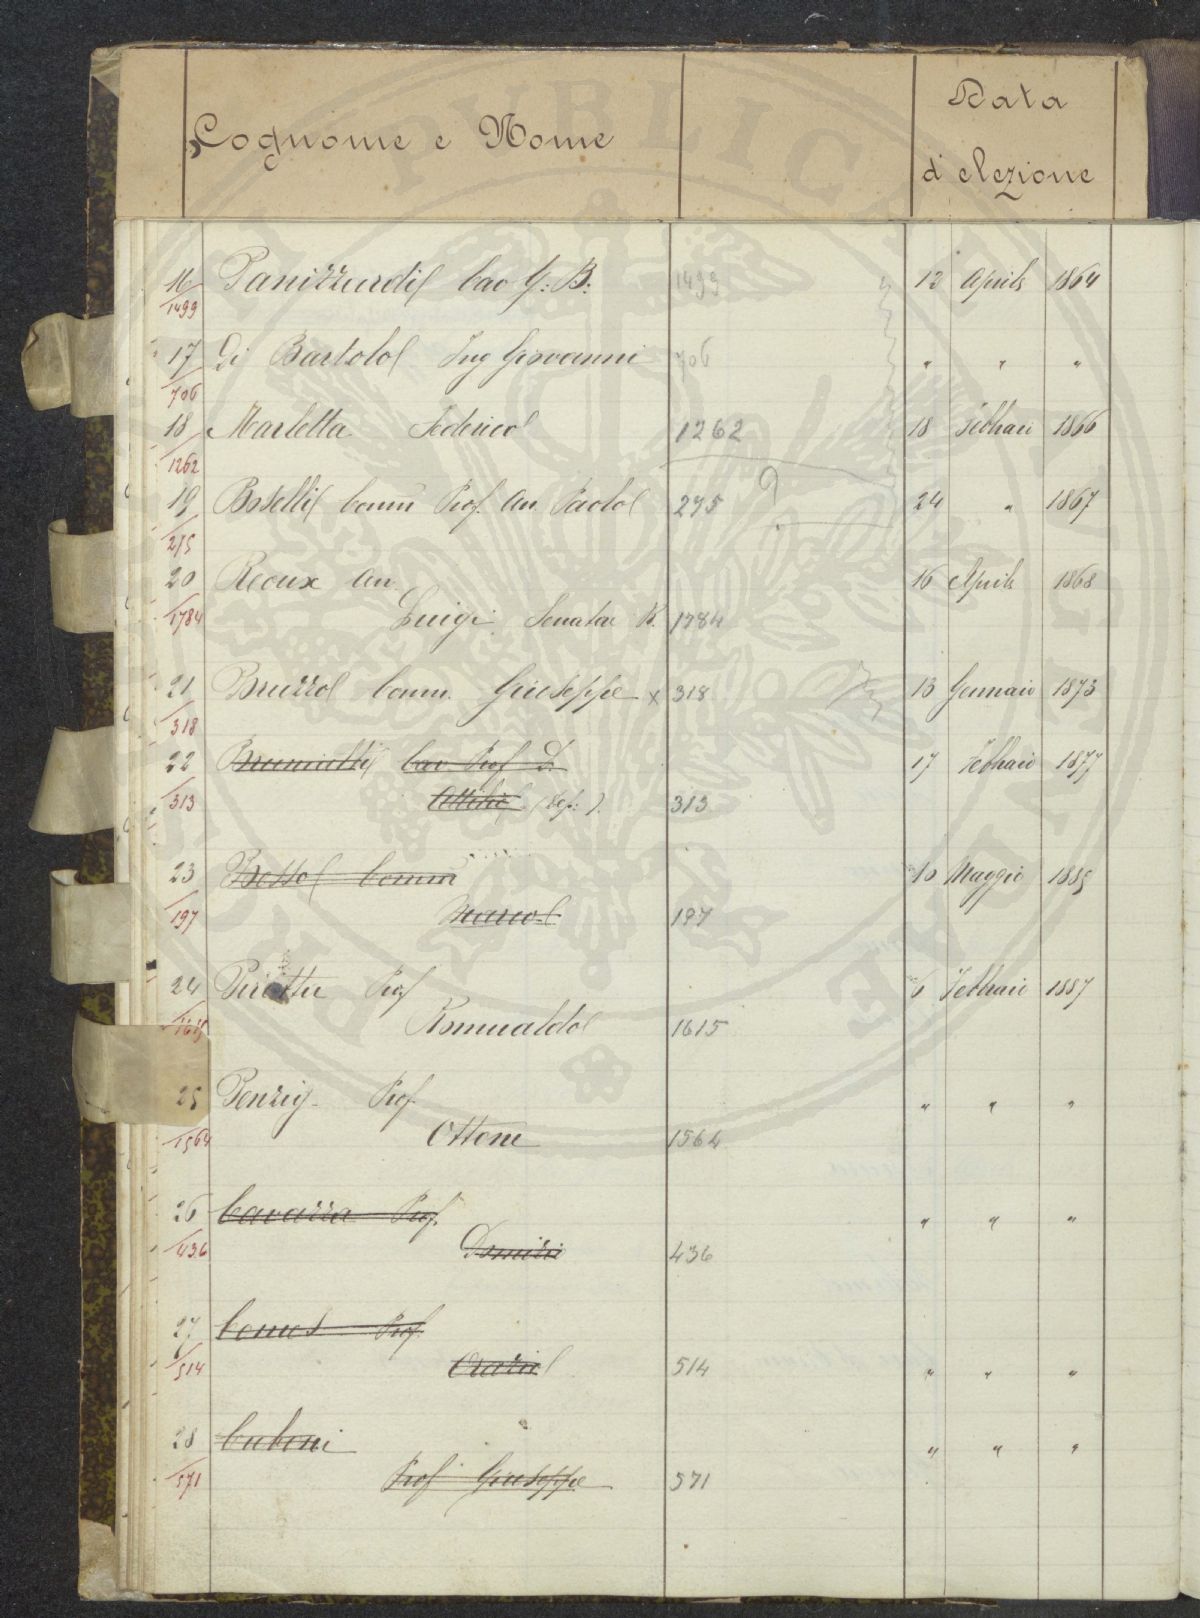 Cognome e Nome Data
d'elezione
16 Panizzardi Cav G: B. 1499 12 Aprile 1864
1499
17 Di Bartolo Ing Giovanni 706 " " "
706
18 Marletta Federico 1262 18 Febbraio 1866
1262
19 Boselli Comm Prof. Paolo 275 24 " 1867
215
20 Reoux 16 Aprile 1868
1784 Luigi Senatore R. 1784
21 Bruzzo Comm. Giuseppe x 318 13 Gennaio 1873
318
22 Brunialti Cav Prof D. 17 Febbraio 1877
313 Attilio (dep:) 313
23 Besso Comm 10 Maggio 1885
197 Marco 197
24 Pirotta Prof 6 Febbraio 1887
1615 Romualdo 1615
25 Penzig Prof. " " "
1564 Ottone 1564
26 Cavazza Prof. " " "
436 Domizio 436
27 Comes Prof.
514 Orazio 514 " " "
28 Cuboni " " "
571 Prof Giuseppe 571